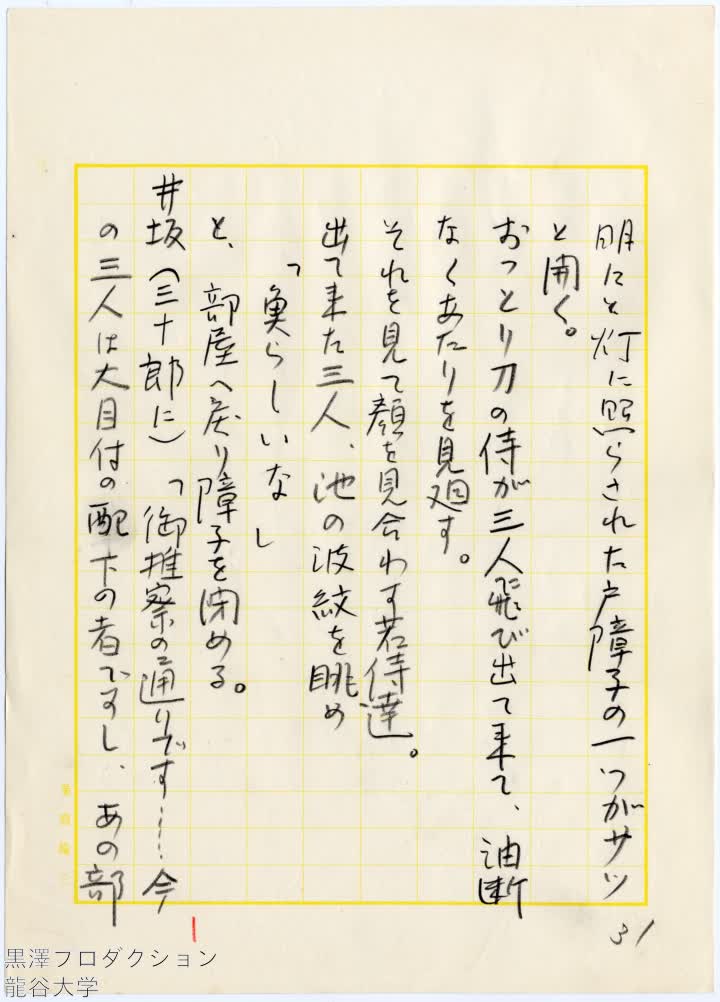 明にと灯に照らされた戸障子の一つがサツ
と開く。
おつとり刀の侍が三人飛び出て来て、油断
なくあたりを見廻す。
それを見て顔を見合わす若侍達。
出て来た三人、池の波紋を眺め
「魚らしいな」
と、部屋へ戻り障子を閉める。
井坂（三十郎に）「御推察の通りです……今
の三人は大目付の配下の者ですし、あの部
31
黒澤プロダクション
龍谷大学